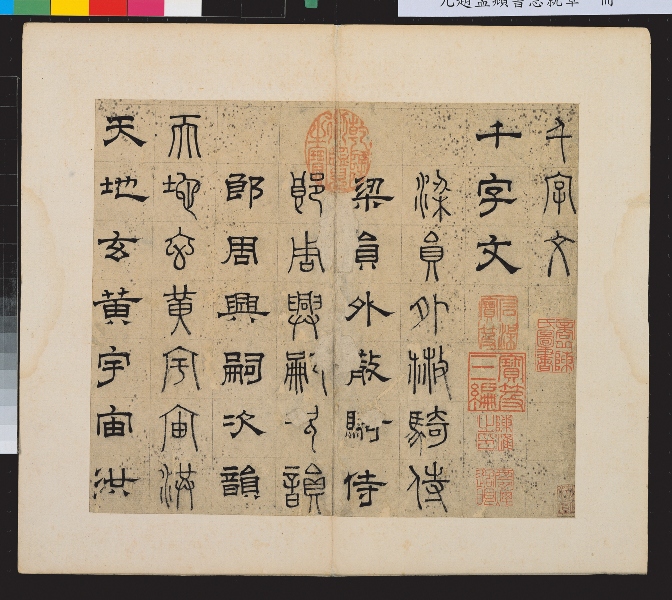 元趙孟頫書急就章 一冊
千字文
千字文
石渠寶笈
寶笈三編
梁員外散騎侍
梁員外散騎侍
郎周興嗣次韻
郎周興嗣次韻
天地玄黃宇宙洪
天地玄黃宇宙洪